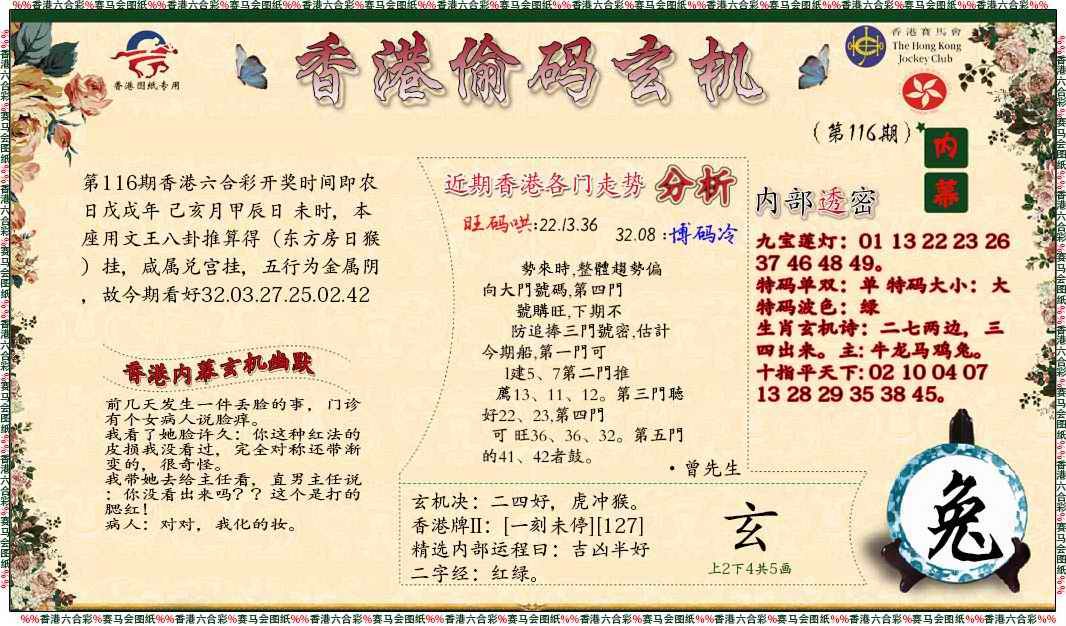 %%香港六合彩%赛马会图纸%%香港六合彩%赛马会图纸%%香港六合彩%赛马会图纸%%香港六合彩%赛马会图纸%%香港六合彩%赛马会图纸%%香港六合彩%赛马会图纸%%香港六合彩%赛马会图纸%%
香港图纸专用
香港偷码玄机
香港賽馬會
The Hong Kong
Jockey Club
(第116期)
内
幕
第116期香港六合彩开奖时间即农
日戊戌年 己亥月甲辰日 未时，本
座用文王八卦推算得（东方房日猴
）挂，咸属兑宫挂，五行为金属阴
，故今期看好32.03.27.25.02.42
香港内幕玄机幽默
前几天发生一件丢脸的事，门诊
有个女病人说脸痒。
我看了她脸许久：你这种红法的
皮损我没看过，完全对称还带渐
变的，很奇怪。
我带她去给主任看，直男主任说
：你没看出来吗？？这个是打的
腮红！
病人：对对，我化的妆。
近期香港各门走势 分析
旺码哄:22.13.36
32.08 :博码冷
勢來時,整體趨勢偏
向大門號碼,第四門
號購旺,下期不
防追捧三門號密,估計
今期船,第一門可
1建5、7第二門推
薦13、11、12。第三門聴
好22、23,第四門
可 旺36、36、32。第五門
的41、42者鼓。
·曾先生
内部透密
九宝莲灯：01 13 22 23 26
37 46 48 49。
特码单双：单 特码大小：大
特码波色：绿
生肖玄机诗：二七两边，三
四出来。主: 牛龙马鸡兔。
十指平天下: 02 10 04 07
13 28 29 35 38 45。
玄机决：二四好，虎冲猴。
香港牌II：[一刻未停][127]
精选内部运程曰：吉凶半好
二字经：红绿。
玄
上2下4共5画
兔
%%香港六合彩%赛马会图纸%%香港六合彩%赛马会图纸%%香港六合彩%赛马会图纸%%香港六合彩%赛马会图纸%%香港六合彩%赛马会图纸%%香港六合彩%赛马会图纸%%香港六合彩%赛马会图纸%%